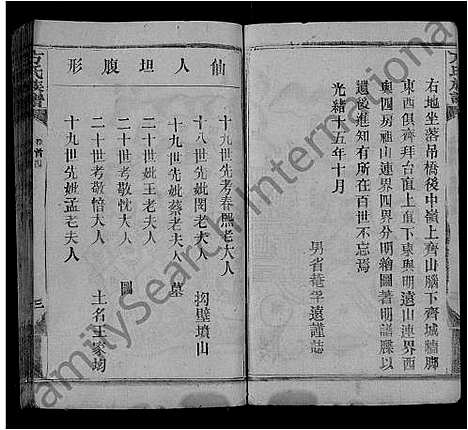 右地坐落吊橋後中嶺上齊山腦下齊城牆脚
東西俱齊拜台直上直下東與明遠山連界西
與四房祖山連界四界分明繪圖著明譜牒以
遺後進知有所在百世不忘焉
光緒十五年十月
男省菴孚遠謹誌
仙人坦腹形
十九世先考春熙老大人
十八世先妣閔老夫人
十九世先妣蔡老夫人 墓
二十世妣王老夫人
二十世考敬忱大人 圖
二十世考敬愔大人
十九世先妣孟老夫人
拗壁墳山
土名王家坳
方氏族譜
卷首四
三
方氏族譜
FamilySearch International